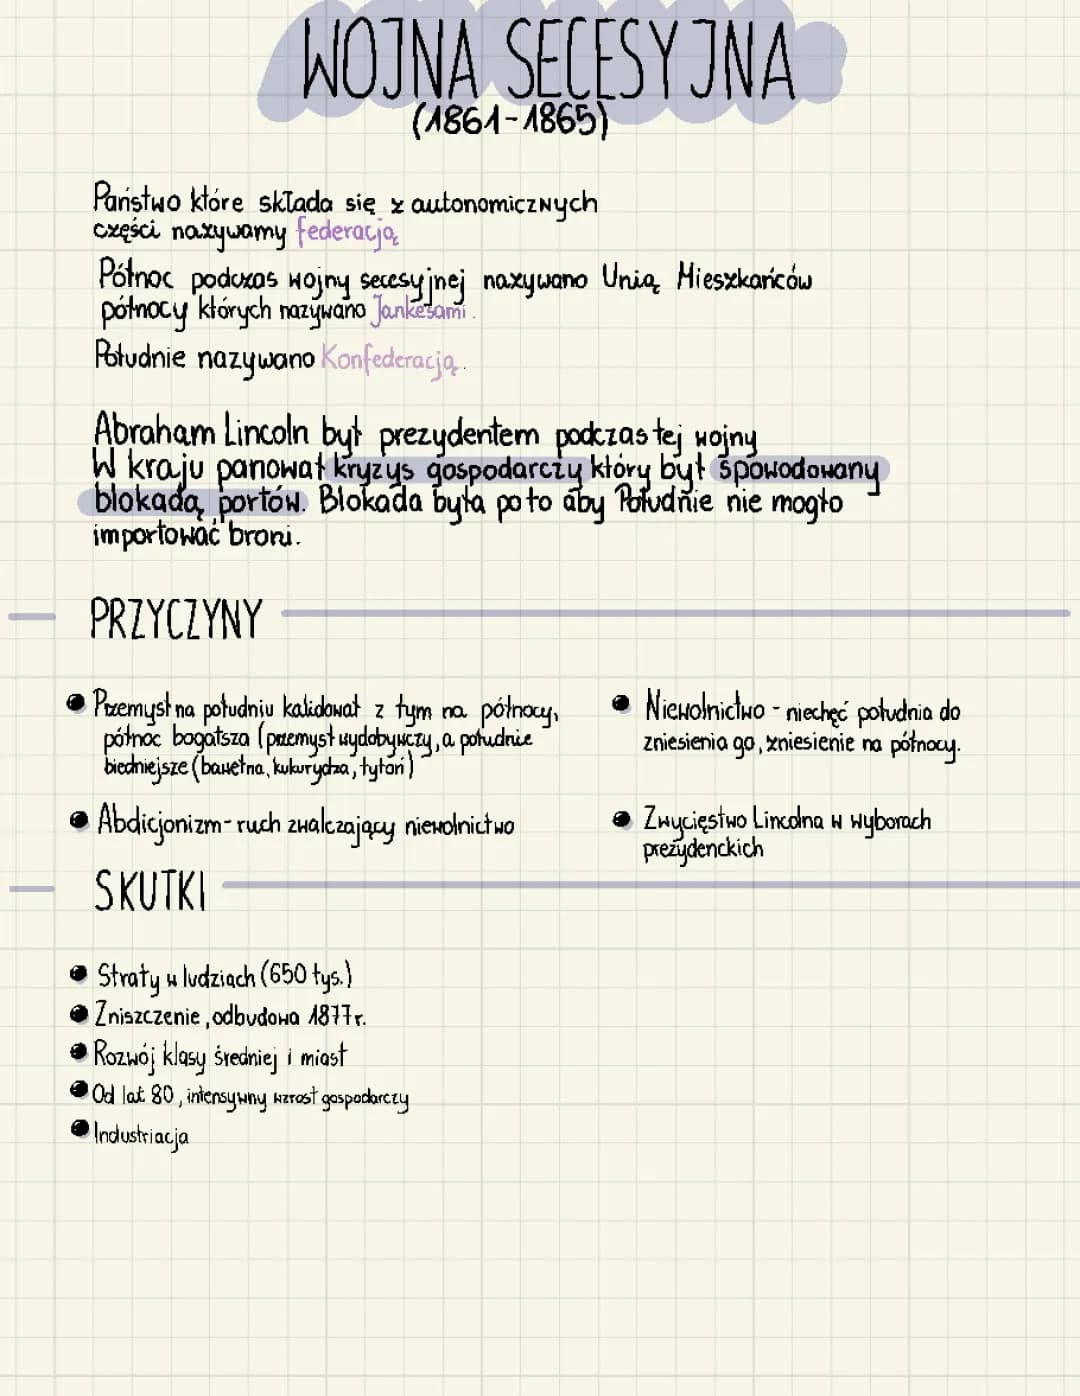 WOJNA SECESYJNA
(1861-1865)
Państwo które składa się z autonomicznych
części nazywamy federacją
Północ podczas wojny secesyjnej nazywano Unią Mieszkańców
północy których nazywano Jankesami.
Południe nazywano Konfederacją.
Abraham Lincoln był prezydentem podczas tej wojny
W kraju panował kryzys gospodarczy który był spowodowany
blokadą portów. Blokada była po to aby Południe nie mogło
importować broni.
PRZYCZYNY
Przemysł na południu kalidował z tym na północy,
północ bogatsza (przemysł wydobywczy, a południe
biedniejsze (bawełna, kukurydza, tytoń)
Abdicjonizm- ruch zwalczający niewolnictwo
Niewolnictwo - niechęć południa do
zniesienia go, zniesienie na północy.
Zwycięstwo Lincolna w wyborach
prezydenckich
SKUTKI
Straty w ludziach (650 tys.)
Zniszczenie, odbudowa 1877r.
Rozwój klasy średniej i miast
Od lat 80, intensywny wzrost gospodarczy
Industriacja